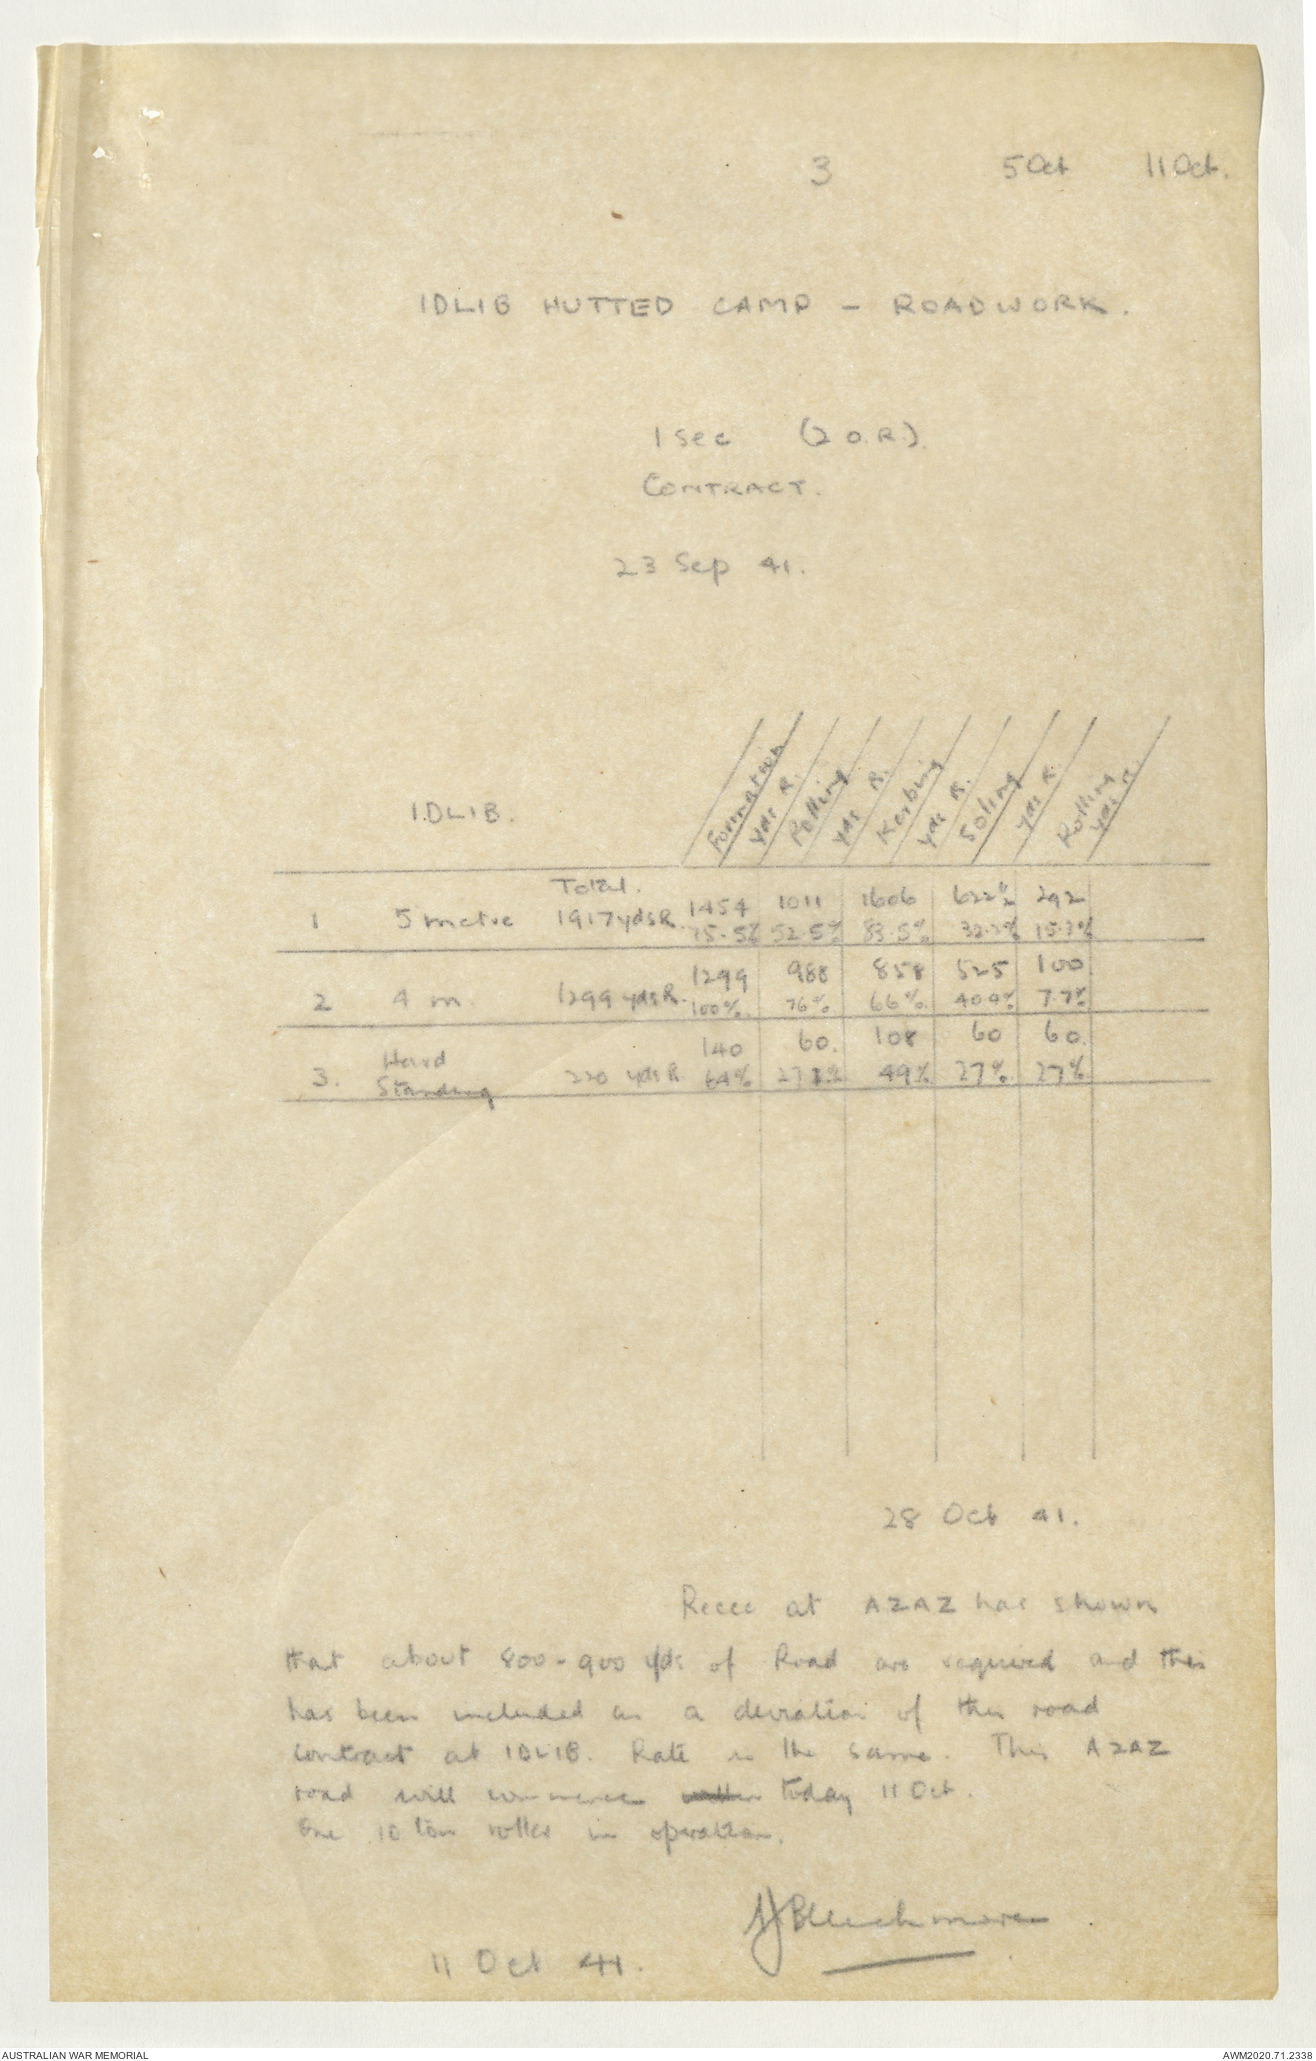 3 5 Oct 11 Oct.
IDLIB HUTTED CAMP - ROADWORK.
1 sec (2 O.R.).
CONTRACT.
23 Sep 41.
IDLIB. Formation yds R. Rolling yds R. Kerbing yds R. Soling yds R. Rolling yds R
Total.
1 5 metre 1917 yds R. 1454 1011 1606 622 292
75.5% 52.5% 83.5% 32.2% 15.2%
2 4 m. 1299 yds R. 1299 988 858 525 100
100% 76% 66% 40.4% 7.7%
3. Hard Standing 220 yds R 140 60. 108 60 60.
64% 49% 27% 27%
28 Oct 41.
Recce at AZAZ has shown
that about 800-900 yds of Road are required and this
has been included as a deviation of this road
contract at IDLIB. Rate is the same. This AZAZ
road will commence today 11 Oct.
One 10 ton roller in operation.
Blechmore
11 Oct 41.
AUSTRALIAN WAR MEMORIAL AWM2020.71.2338